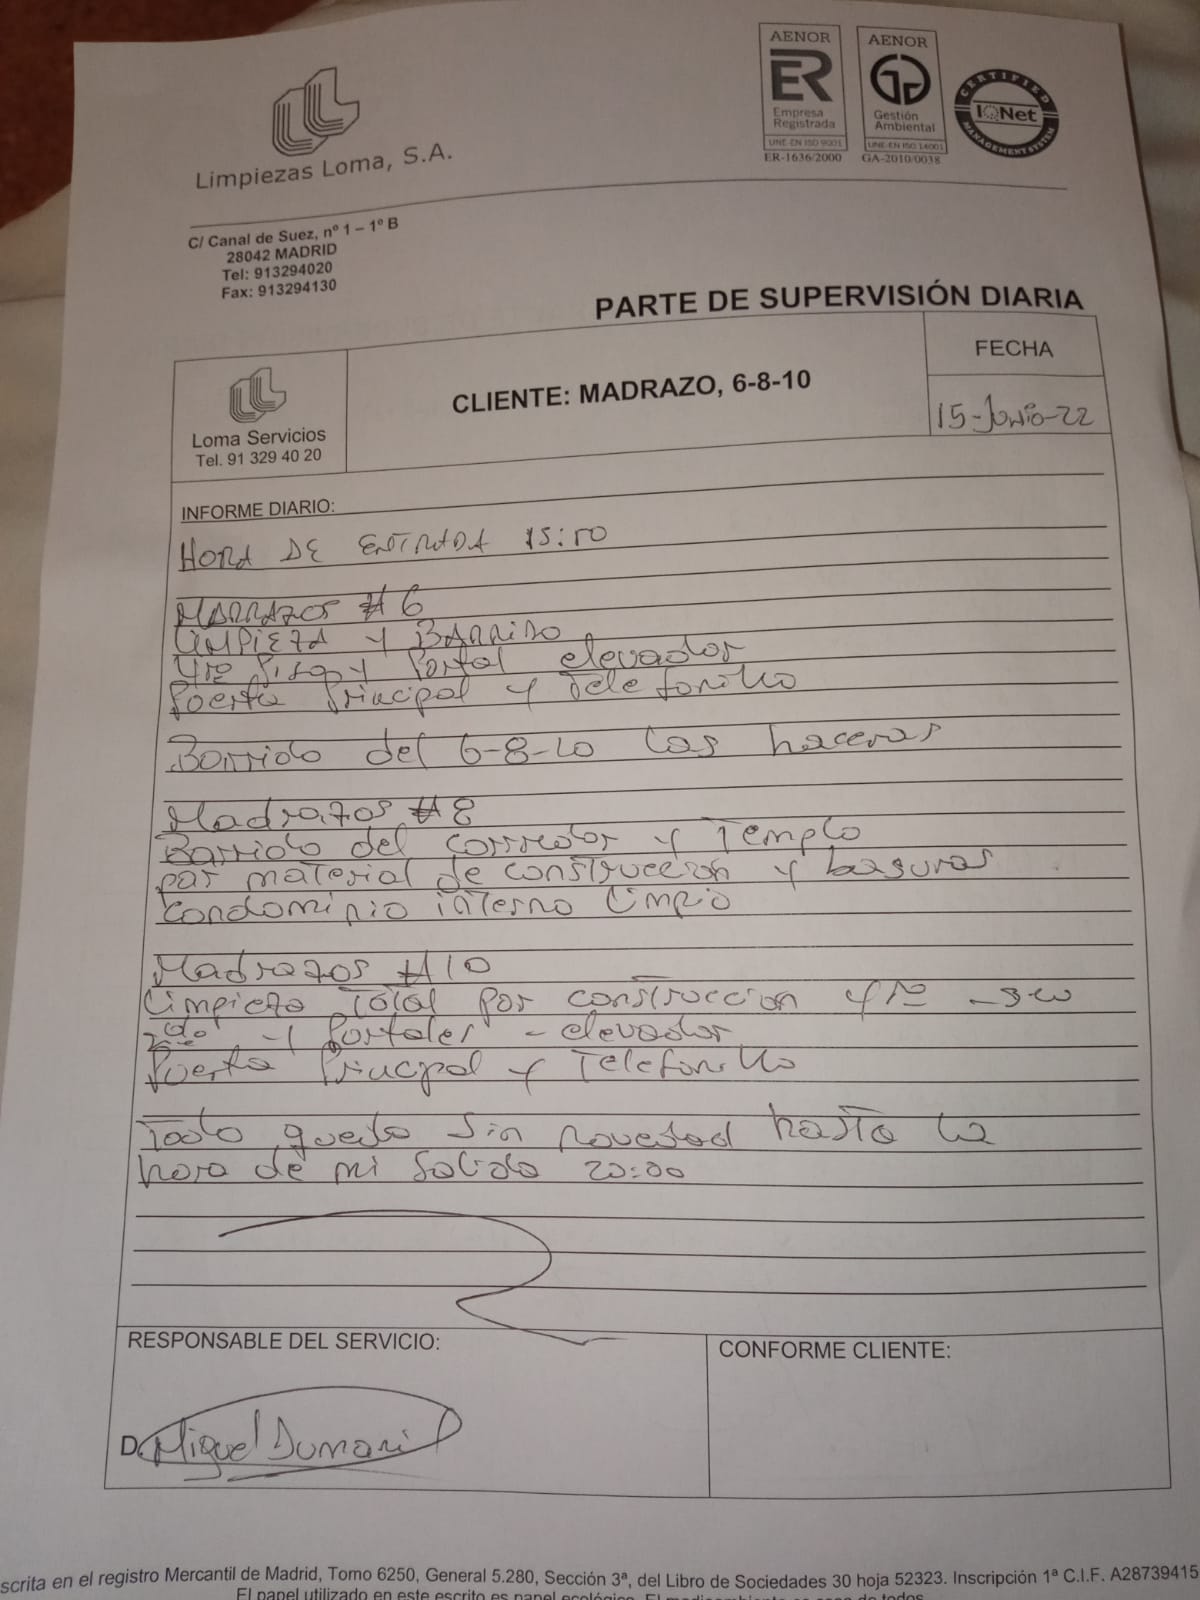 Limpiezas Loma, S.A.
AENOR
ER
Empresa
Registrada
UNE-EN ISO 9001
ER-1636/2000
AENOR
Gestión
Ambiental
UNE-EN ISO 14001
GA-2010/0038
CERTIFIED
IQNet
MANAGEMENT SYSTEM
C/ Canal de Suez, nº 1 – 1º B
28042 MADRID
Tel: 913294020
Fax: 913294130
PARTE DE SUPERVISIÓN DIARIA
Loma Servicios
Tel. 91 329 40 20
CLIENTE: MADRAZO, 6-8-10
FECHA
15-Junio-22
INFORME DIARIO:
HORA DE ENTRADA 15:00
MADRAZOS #6
LIMPIEZA Y BARRIDO
Piso y Portal elevador
Puerta Principal y Telefonillo
Barrido del 6-8-10 las haceras
Madrazos #8
Barrido del corredor y Templo
par material de construccion y basuras
condominio interno limpio
Madrazos #10
Limpieza Total por construccion
2do y Portales - elevador
Puerta Principal y Telefonillo
Todo quedo Sin novedad hasta la
hora de mi salida 20:00
RESPONSABLE DEL SERVICIO:
CONFORME CLIENTE:
D. Miguel
scrita en el registro Mercantil de Madrid, Tomo 6250, General 5.280, Sección 3ª, del Libro de Sociedades 30 hoja 52323. Inscripción 1ª C.I.F. A28739415
El papel utilizado en este escrito es papel ecológico. El